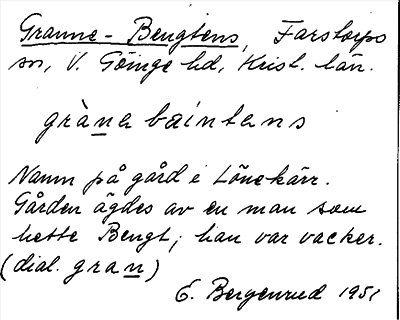 Granne-Bengtens, Farstorps
sn, V. Göinge hd, Krist. län.
gràna baintans
Namn på gård i Lönekärr.
Gården ägdes av en man som
hette Bengt; han var vacker.
(dial. gran)
E. Bergenrud 1951